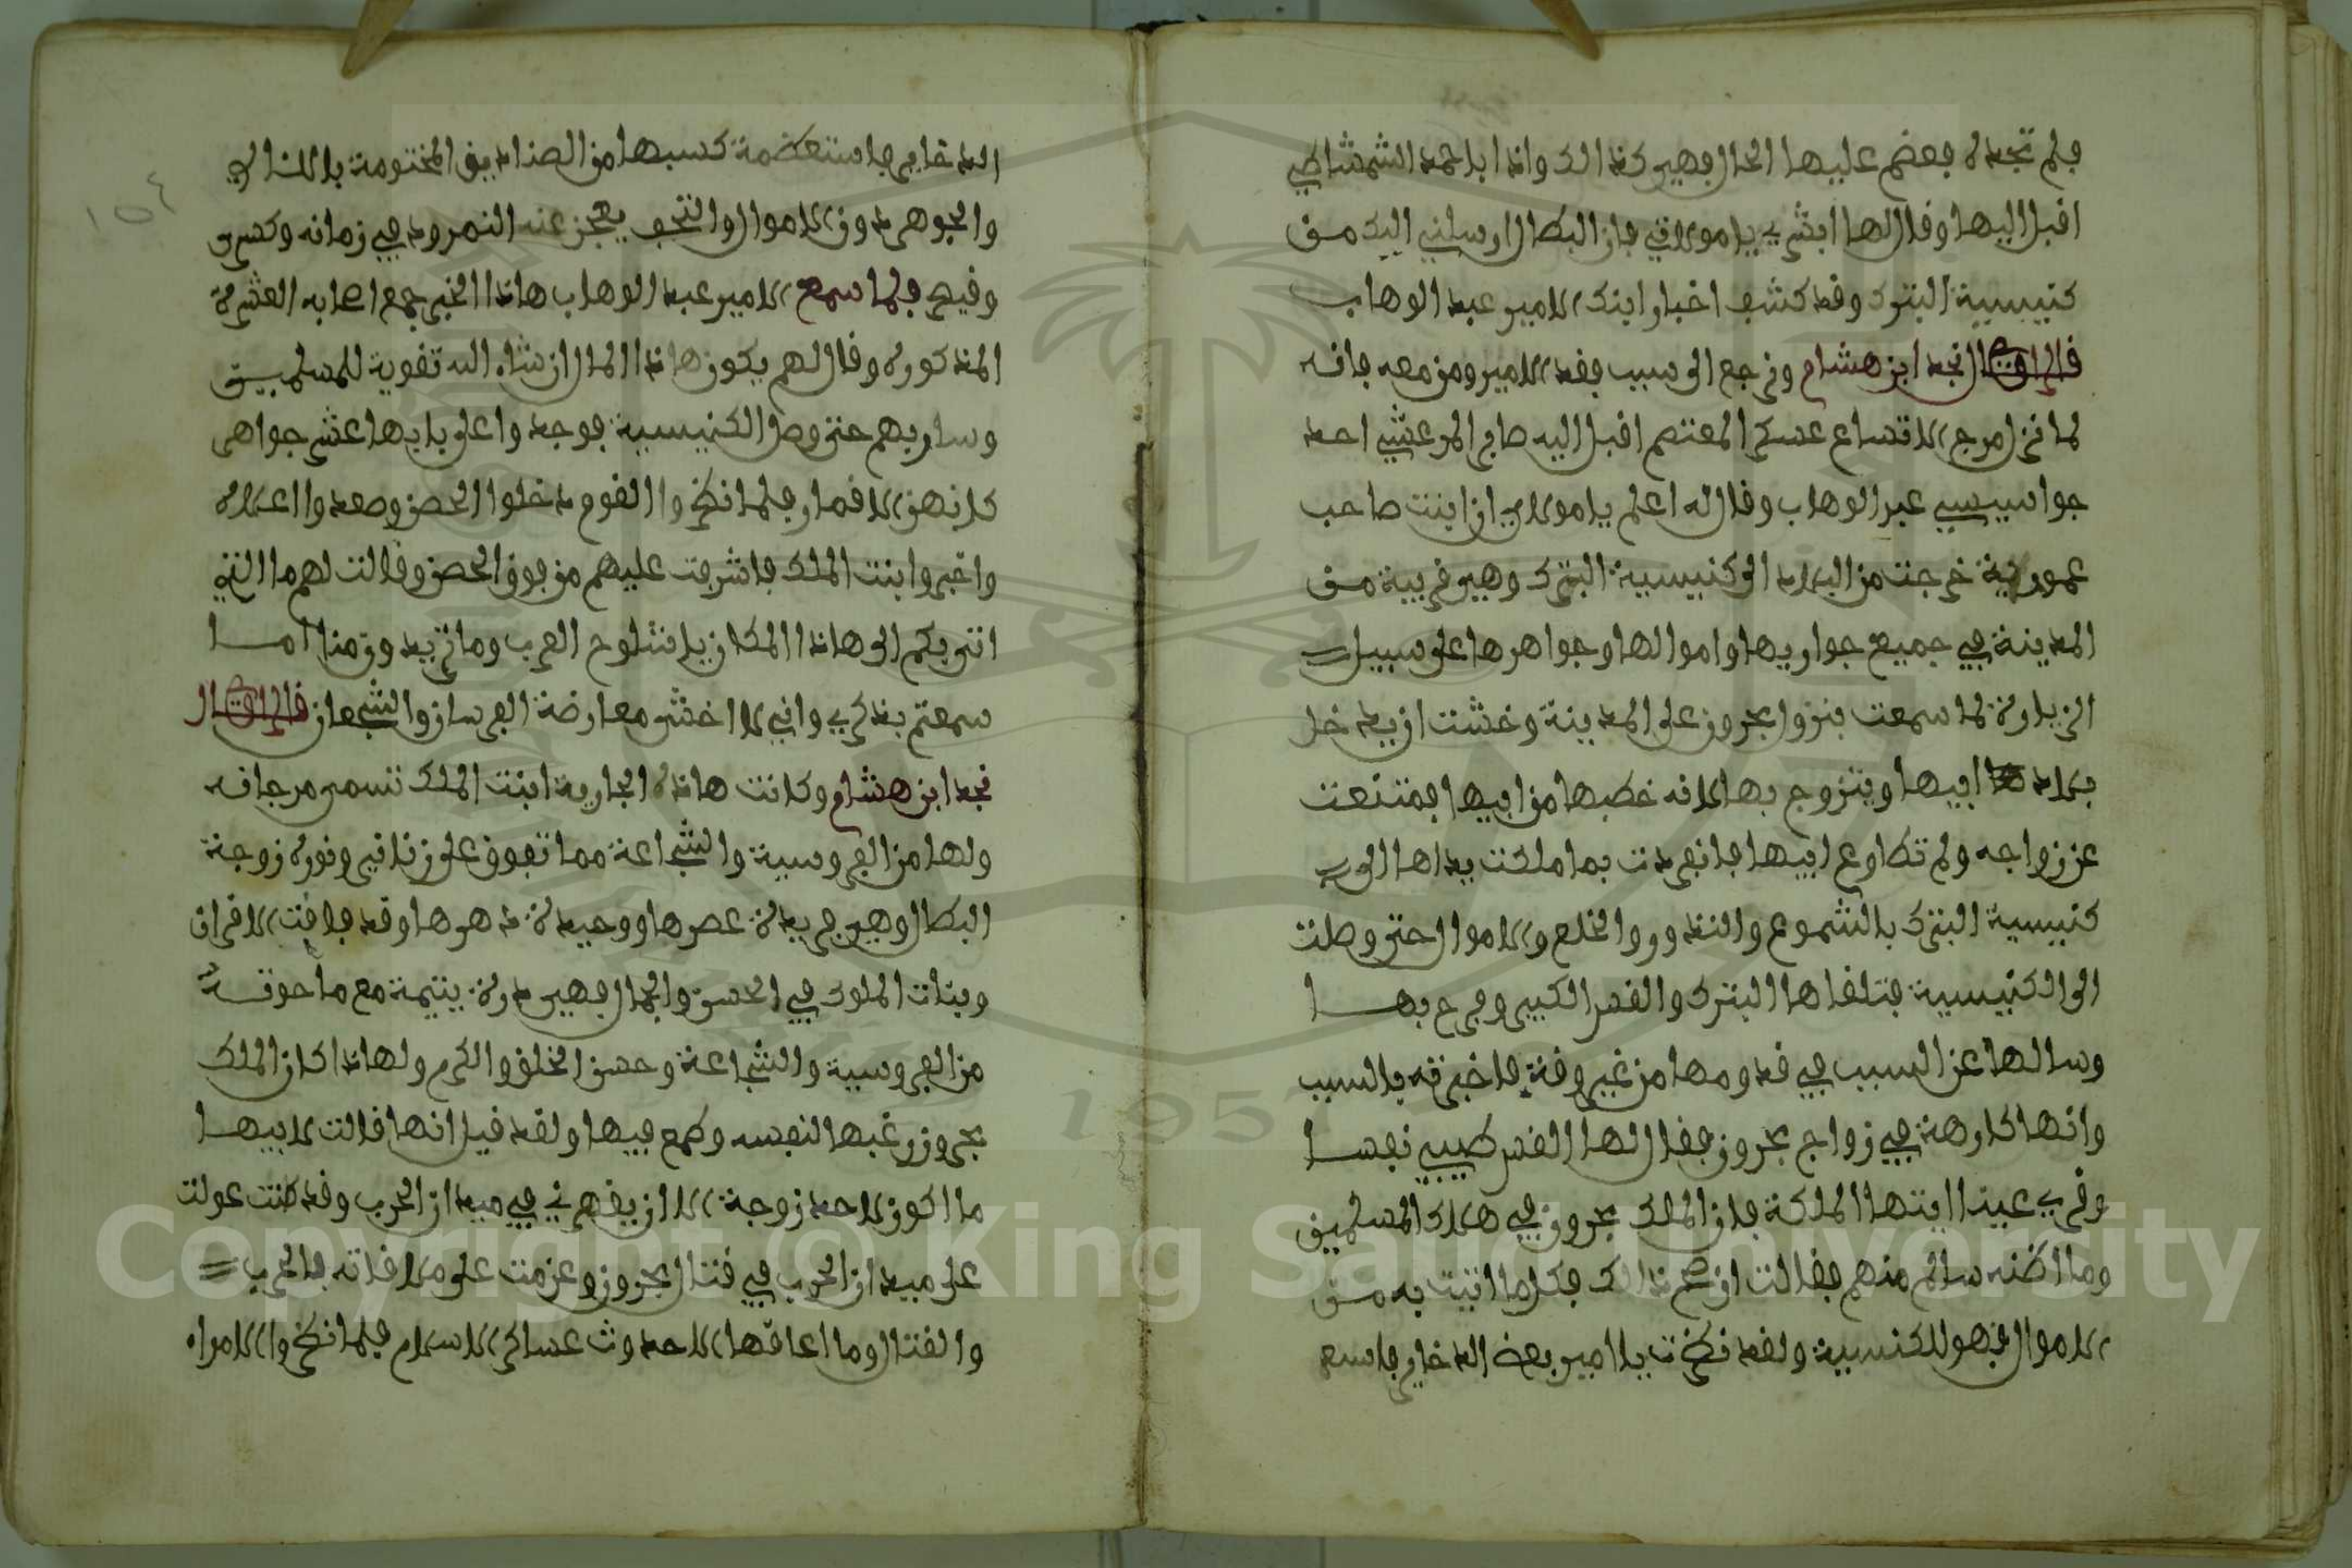 فلم تجده فعضم عليها الحال فهي كذالك واذا باحمد الشمشاطي
اقبل اليها وقال لها ابشري يا مولاتي فان البطال ارسلني اليك من
كنيسية البترك وقد كشف اخبار ابنك الامير عبد الوهاب
قال الراوي نجد ابن هشام ونرجع الى سبب فقد الامير ومن معه فانه
لما نزل مرج الاقساع عسكر المعتصم اقبل اليه صابر المرعشي احد
جواسيسي عبد الوهاب وقال له اعلم يا مولاي ان ابنت صاحب
عمورية خرجت من البلاد الى كنيسية البترك وهي قريبة من
المدينة في جميع جواريها واموالها وجواهرها على سبيل
الزيارة لما سمعت بنزول بحرون على المدينة وخشت ان يدخل
بلاد ابيها ويتزوج بها لانه خطبها من ابيها فمتنعت
عن زواجه ولم تطاوع ابيها فانفردت بما ملكت يداها الى
كنيسية البترك بالشموع والنذور والخلع والاموال حتى وصلت
الى الكنيسية فتلقاها البترك والقس الكبير وفرح بها
وسالها عن السبب في قدومها من غير وقت فاخبرته بالسبب
وانها كارهة في زواج بحرون فقال لها القس طيبي نفسا
وقري عينا ايتها الملكة فان الملك بحرون في هلاك المسلمين
وما اظنه سالم منهم فقالت ان صح ذالك فكلما اتيت به من
الاموال فهو للكنسية ولقد نظرت يا امير بعض الدخاير فاسع
الدخاير فاستعظمة كسبها من الصناديق المختومة بالـلئالي
والجوهر دون الاموال والتحف يعجز عنه النمرود في زمانه وكسرى
وقيصر فلما سمع الامير عبد الوهاب هاذا الخبر جمع اصحابه العشرة
المذكوره وقال لهم يكون هاذا المال ان شاء الله تقوية للمسلمين
وسار بهم حتى وصل الكنيسية فوجدوا على بابها عشر جواهر
كانهن الاقمار فلما نظروا القوم دخلوا الحصن وصعدوا اعلاه
واخبروا ابنت الملك فاشرفت عليهم من فوق الحصن وقالت لهم ما الذي
اتى بكم الى هاذا المكان يا شلوح العرب وما تريدون منا اما
سمعتم بذكري واني لا اخشى معارضة الفرسان والشجعان قال الراوي
نجد ابن هشام وكانت هاذه الجارية ابنت الملك تسمى مرجانه
ولها من الفروسية والشجاعة مما تفوق على زنانير ونوره زوجة
البطال وهي فريدة عصرها ووحيدة دهرها وقد فاقت الاقران
وبنات الملوك في الحسن والجمال فهي درة يتيمة مع ما حوته
من الفروسية والشجاعة وحسن الخلق والكرم ولهاذا كان الملك
بحرون رغبها لنفسه وطمع فيها ولقد قيل انها قالت لابيها
ما اكون لاحد زوجة الا ان يقهرني في ميدان الحرب وقد كنت عولت
على ميدان الحرب في قتال بحرون وعزمت على ملاقاته بالحرب
والقتال وما اعاقها الا حدوث عساكر الاسلام فلما نظروا الامراه